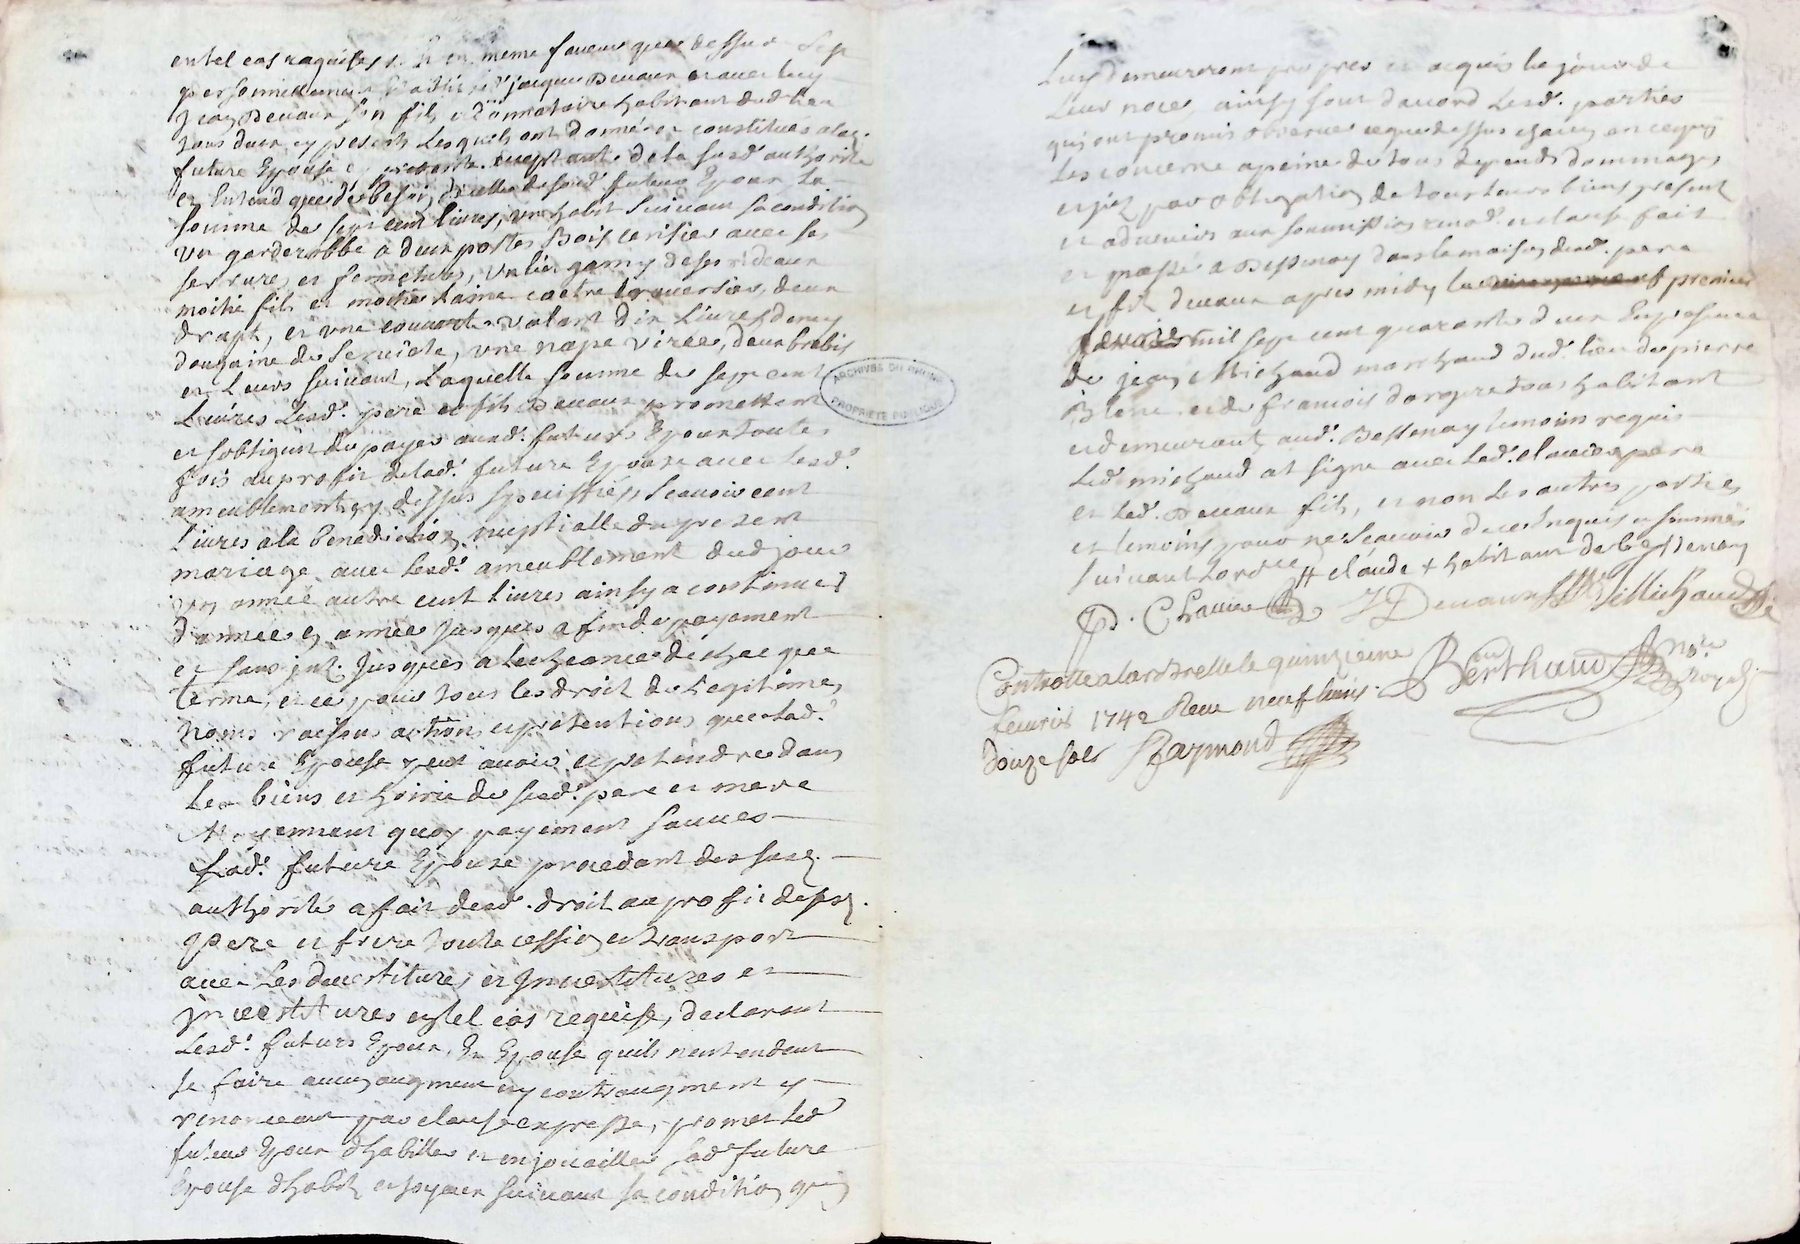 en tel cas requises et en meme faveur que dessus Sest
personnellement Establi led.t jacques Devaux et avec luy
jean Devaux son fils et donnataire habitant dud. lieu
tous deux cy presents Lesquels ont donné et constitués a lad.
future Epouse cy presente acceptante de la susd. authorité
en tant que de besoin, et celle de sond. futeur Epoux La
somme de sept cent livres, un habit suivant sa condition
un garderobbe a deux portes Bois cerisier avec ses
serrures et fermetures, un lict garny de ses rideaux
moitié fils et moitié laine cadre traversier, deux
drapt, et une couverte valant dix Livres demy
douzaine de serviete, une nape virée, deux brebis
et Leurs suivant, Laquelle somme de sept cent
Livres Lesd.t pere et fils Devaux promettent
et sobligent de payer auxd.t futurs Epoux toutes
fois au profit de lad.t future Epouse avec Lesd.t
ameublement cy dessus spécifiés, Scavoir cent
livres a la bénédiction nuptialle du present
mariage avec Lesd.t ameublement dud jour
un année autre cent livres ainsy a continuer
d'année en année jusques a fin de payement
et sans int. jusques a Lecheance de chacque
terme, et ce pour tous les droit de Legitime,
noms raisons actions et prétentions que Lad.t
future Epouse peut avoir et pretendre dans
Les biens et hoirie de sesd.t pere et mere
Moyennant quoy payement sauves
Lad.t future Epouse procedant de susd.
authorité a fait desd.t droit au profit de sesd.
pere et frere toute cession et transport
avec Les devestitures et Investitures et
investitures en tel cas requise, declarant
Lesd.t futurs Epoux, Et Epouse quils nentendent
se faire aucun augment ny contraugment y
renonceant par clause expresse, promet Led
futeur Epoux d'habiller et enjoailler Lad.t future
Epouse d'habit et joyaux suivant sa condition qui
Luy demeureront propres et acquis le jour de
Leur noces, ainsy sont d'accord Lesd.t parties
qui ont promis observer ce que dessus chacun en ce qui
Les concerne a peine de tous depends dommages
et int. par obligation de tous leurs biens present
et advenirs aux soumissions renod. et clause fait
et passé a Bessenay dans la maison desd.t pere
et fils devaux apres midy le premier
fevrier mil sept cent quarante deux En presence
de jean Michaud marchand dud.t lieu de pierre
Blanc et de francois dargere tous habitant
et demeurant aud.t Bessenay temoins requis
Led.t michaud at signé avec Led.t claude pere
et Led.t Devaux fils, et non Les autres parties
et temoins pour ne Scavoir de ce Enquis et sommés
suivant Lordce # claude + habitant de bessenay
J Devaux Michaud
Controllé a larbrelle le quinzieme
fevrier 1742 Recu neuf livres
douze sols Raymond
Berthaud no.re Royal
ARCHIVES DU RHONE
PROPRIÉTÉ PUBLIQUE